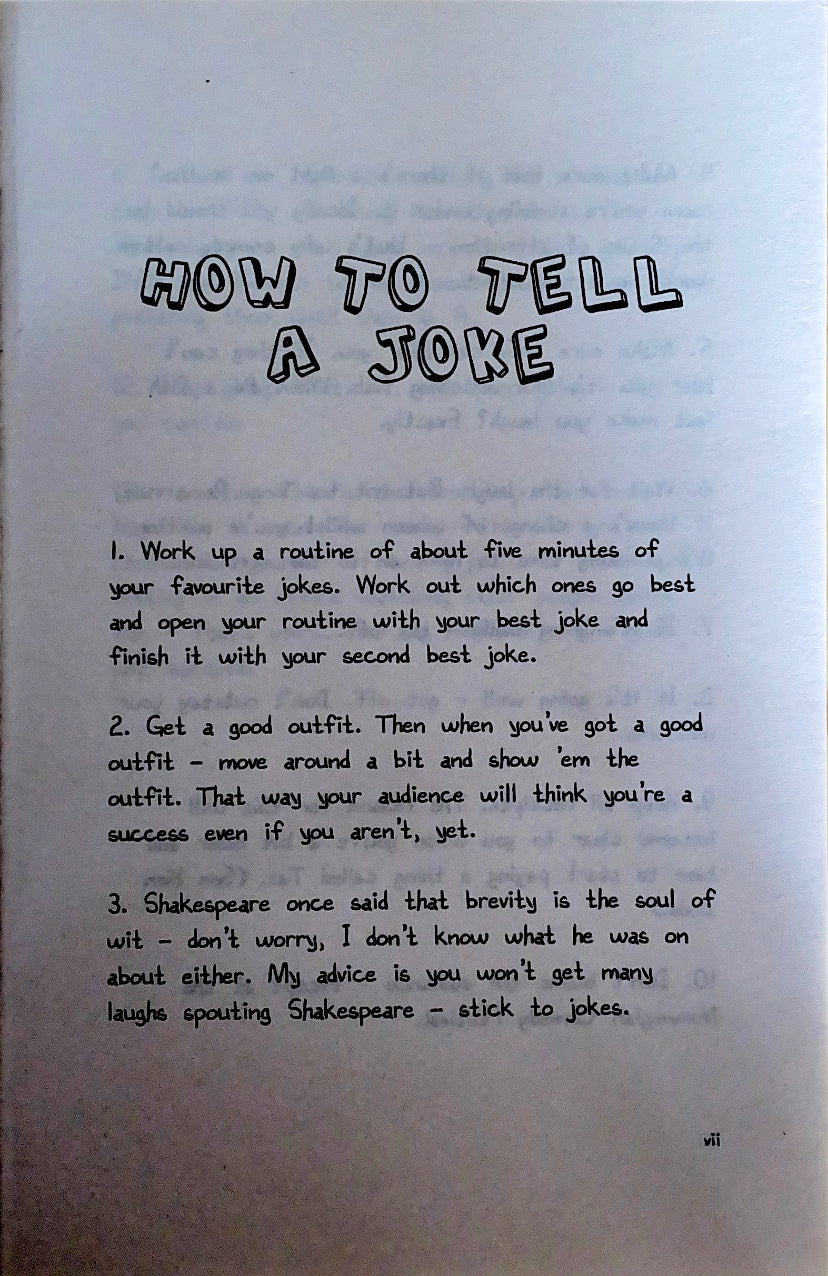 HOW TO TELL
A JOKE
1. Work up a routine of about five minutes of
your favourite jokes. Work out which ones go best
and open your routine with your best joke and
finish it with your second best joke.
2. Get a good outfit. Then when you've got a good
outfit – move around a bit and show 'em the
outfit. That way your audience will think you're a
success even if you aren't, yet.
3. Shakespeare once said that brevity is the soul of
wit – don't worry, I don't know what he was on
about either. My advice is you won't get many
laughs spouting Shakespeare – stick to jokes.
vii